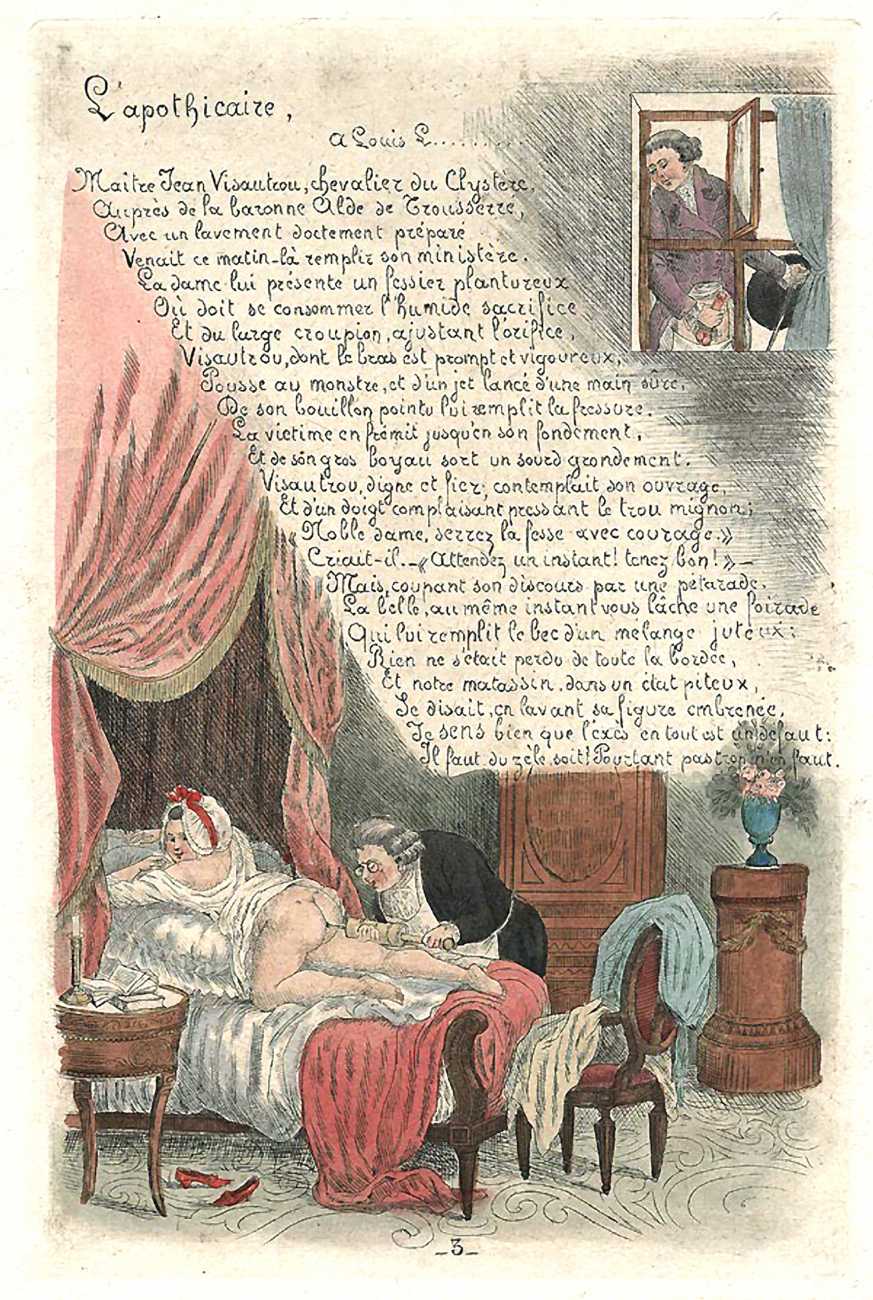 L'apothicaire,
A Louis L..........
Maître Jean Visautrou, chevalier du Clystère,
Auprès de la baronne Alde de Trousserre,
Avec un lavement doctement préparé
Venait ce matin-là remplir son ministère.
La dame lui présente un fessier plantureux
Où doit se consommer l'humide sacrifice
Et du large croupion, ajustant l'orifice,
Visautrou, dont le bras est prompt et vigoureux,
Pousse au monstre, et d'un jet lancé d'une main sûre,
De son bouillon pointu lui remplit la fressure.
La victime en frémit jusqu'en son fondement,
Et de son gros boyau sort un sourd grondement.
Visautrou, digne et fier, contemplait son ouvrage,
Et d'un doigt complaisant pressant le trou mignon;
«Noble dame, serrez la fesse avec courage.»
Criait-il._«Attendez un instant! tenez bon!»_
Mais, coupant son discours par une pétarade,
La belle, au même instant vous lâche une foirade
Qui lui remplit le bec d'un mélange juteux:
Rien ne s'était perdu de toute la bordée,
Et notre matassin, dans un état piteux,
Se disait, en lavant sa figure embrenée,
Je sens bien que l'excès en tout est un défaut:
Il faut du zèle, soit! Pourtant pas trop n'en faut.
_3_